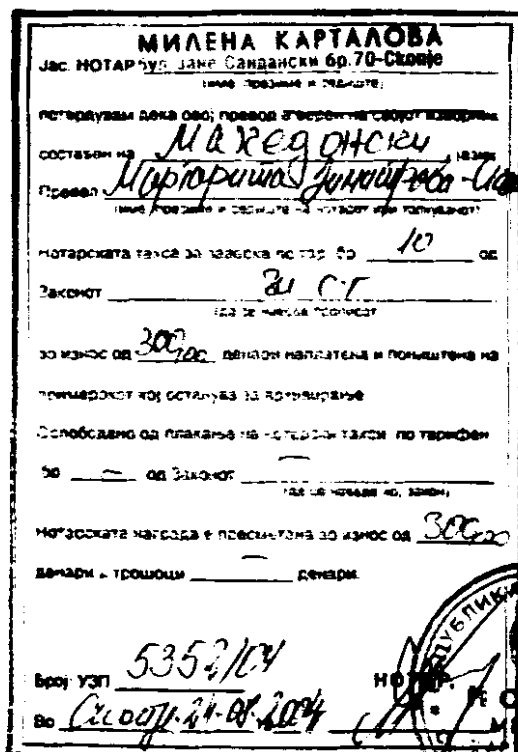 МИЛЕНА КАРТАЛОВА
Јас. НОТАР бул. Јане Сандански бр.70-Скопје
(име презиме и седиште)
потврдувам дека овој превод е верен на својот изворник
составен на Македонски јазик
Превел Маргарита Димитрова-
(име, презиме и седиште на нотарот или толкувачот)
Нотарската такса за заверка по тар. бр 10 од
Законот
(да се наведе прописот
во износ од 300,00 денари наплатена и поништена на
примерокот кој останува за архивирање
Ослободено од плаќање на нотарски такси по тарифен
бр — од Законот —
(да се наведе кој закон)
Нотарската награда е пресметана во износ од 300,00
денари и трошоци — денари.
Број УЗП 5352/04
НОТАР
Во Скопје 24-08-2004